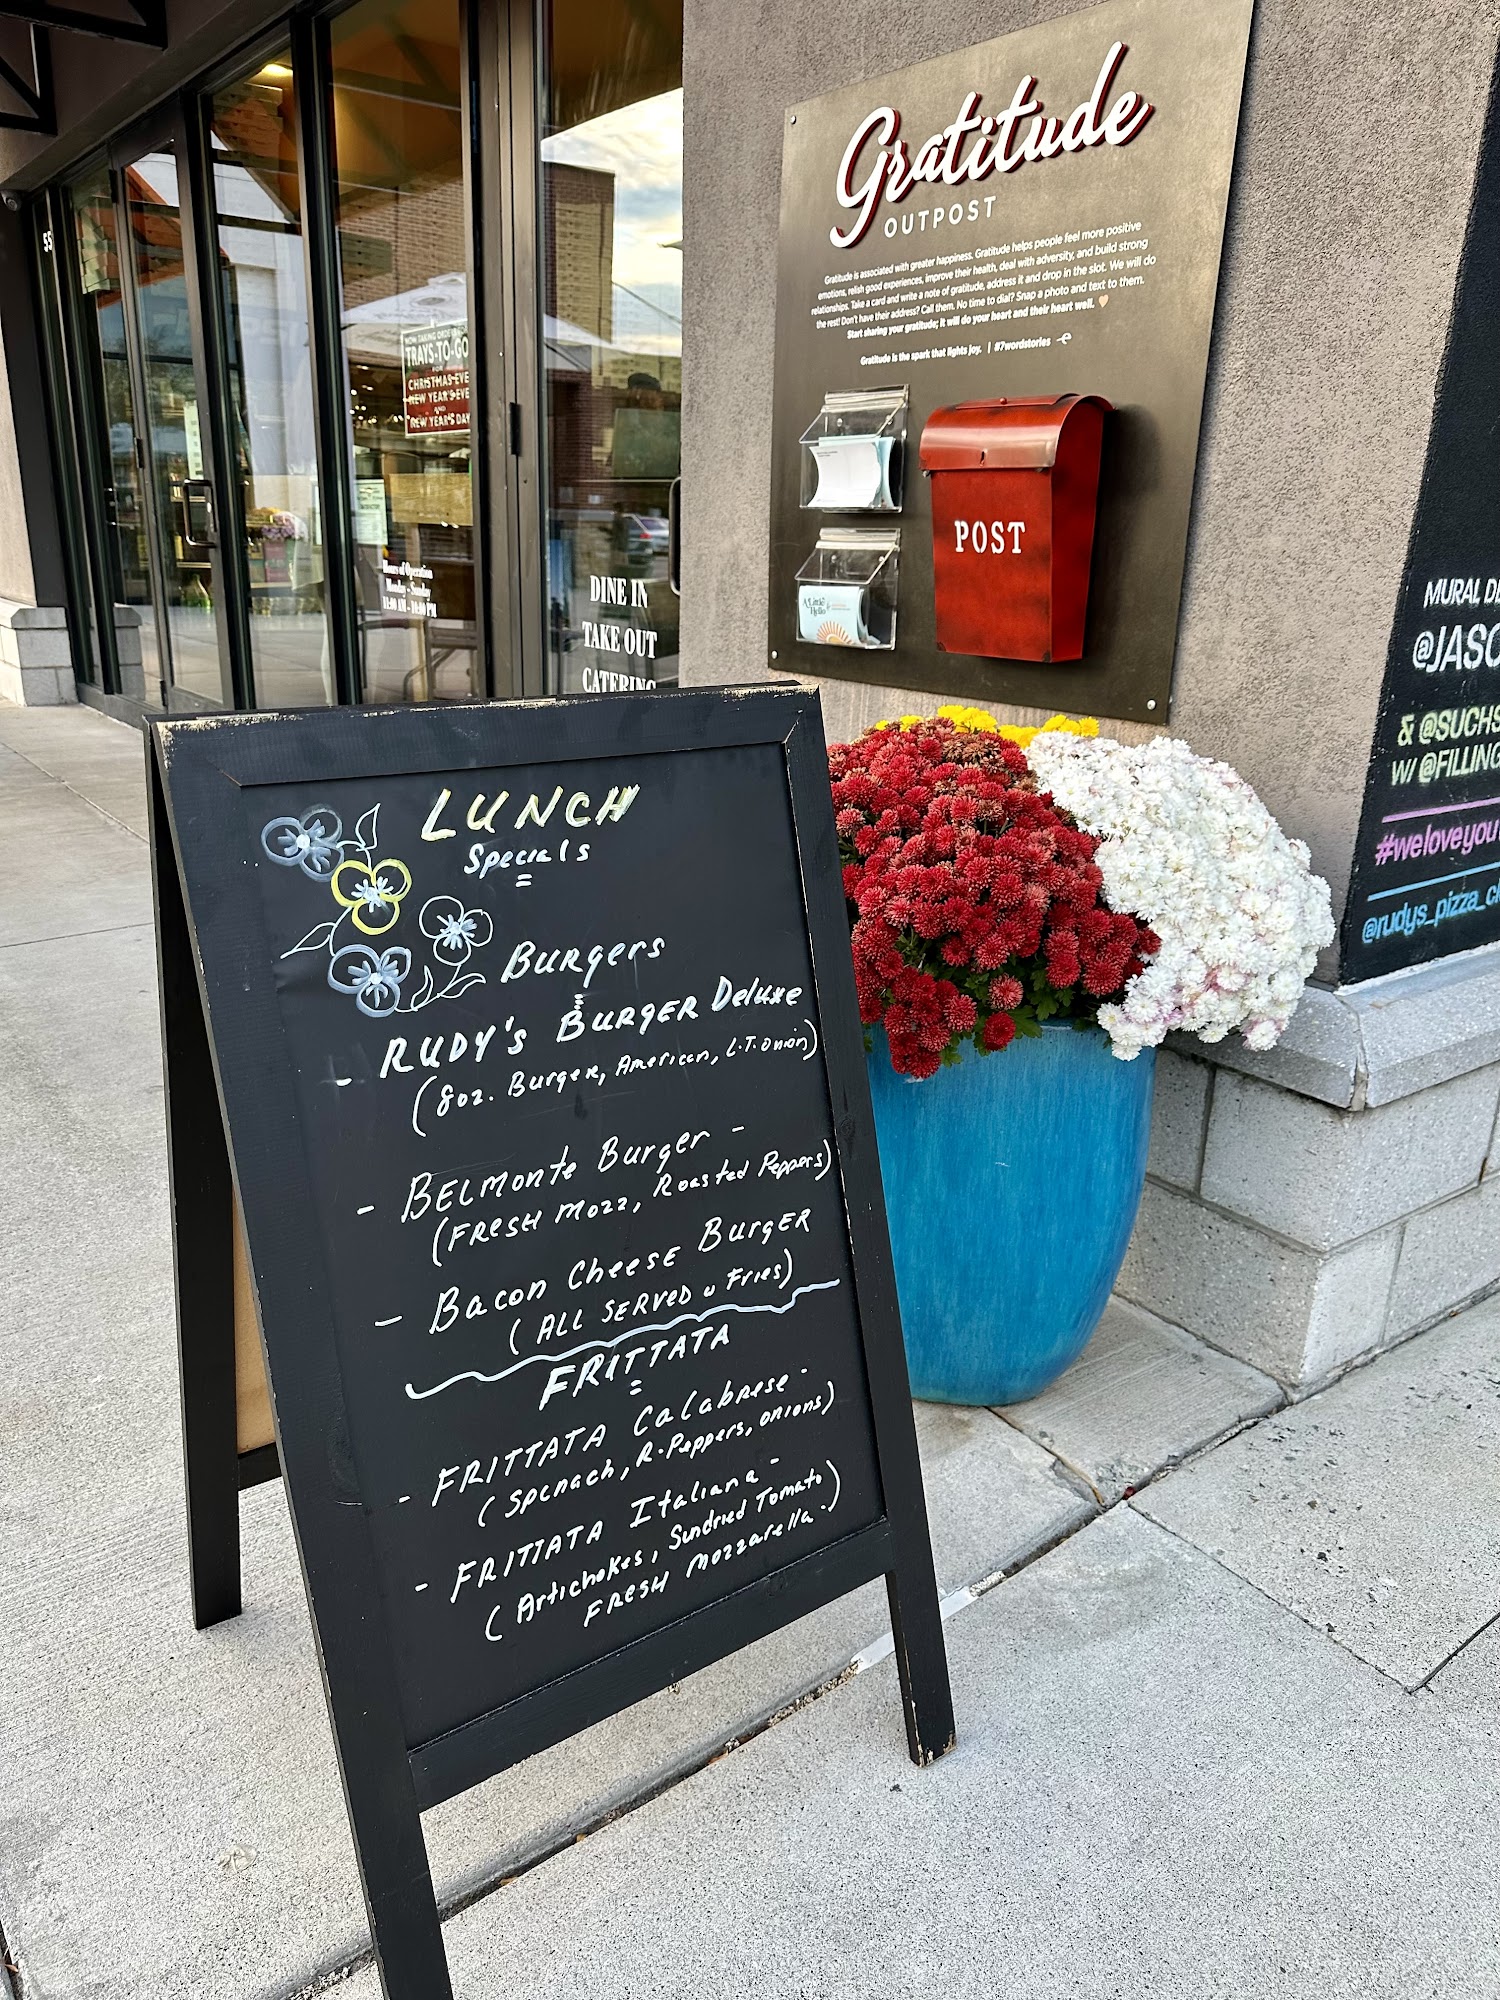 Gratitude
OUTPOST
Gratitude is associated with greater happiness. Gratitude helps people feel more positive
emotions, relish good experiences, improve their health, deal with adversity, and build strong
relationships. Take a card and write a note of gratitude, address it and drop in the slot. We will do
the rest! Don't have their address? Call them. No time to dial? Snap a photo and text to them.
Start sharing your gratitude; it will do your heart and their heart well.
Gratitude is the spark that lights joy. | #7wordstories
POST
A Little
Hello
55
NOW TAKING ORDERS
TRAYS-TO-GO
FOR
CHRISTMAS EVE
NEW YEAR'S EVE
AND
NEW YEAR'S DAY
Hours of Operation
Monday - Sunday
11:00 AM - 10:00 PM
DINE IN
TAKE OUT
CATERING
MURAL DE
@JASO
& @SUCHS
W/ @FILLING
#weloveyou
@rudys_pizza_c
LUNCH
Specials
Burgers
- RUDY'S BURGER Deluxe
(8oz. Burger, American, L.T. onion)
- BELMonte Burger -
(FRESH Mozz, Roasted Peppers)
- Bacon Cheese Burger
(ALL SERVED w Fries)
FRITTATA
- FRITTATA Calabrese -
(Spinach, R. Peppers, onions)
- FRITTATA Italiana -
(Artichokes, Sundried Tomato
FRESH Mozzarella.)